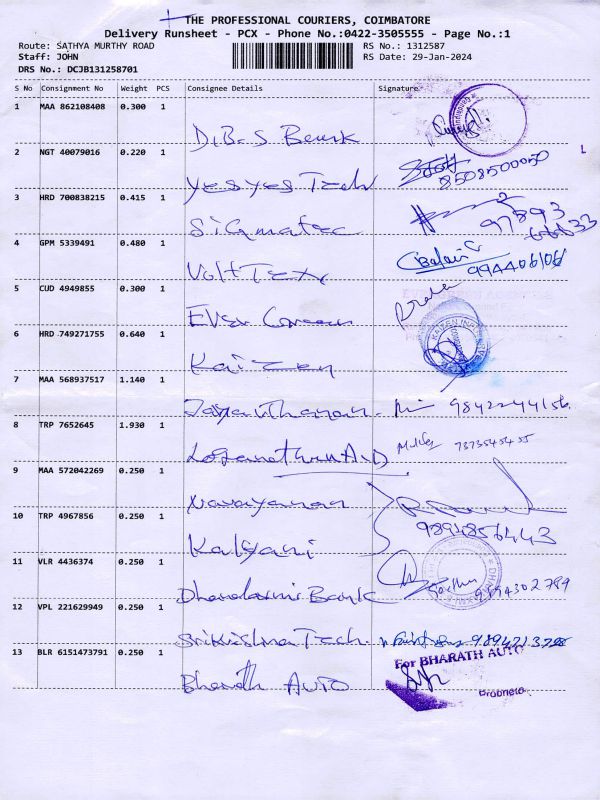 THE PROFESSIONAL COURIERS, COIMBATORE
Delivery Runsheet - PCX - Phone No.:0422-3505555 - Page No.:1
Route: SATHYA MURTHY ROAD
RS No.: 1312587
Staff: JOHN
RS Date: 29-Jan-2024
DRS No.: DCJB131258701
S No Consignment No Weight PCS Consignee Details Signature
1 MAA 862108408 0.300 1
D.B.S Bank
2 NGT 40079016 0.220 1
yes yes Tech
8508500050
3 HRD 700838215 0.415 1
Sigmatec
97893
66633
4 GPM 5339491 0.480 1
Volt Tex
Balaji
994406106
5 CUD 4949855 0.300 1
Ever Green
6 HRD 749271755 0.640 1
Kaizen
KAIZEN
7 MAA 568937517 1.140 1
9842244156
8 TRP 7652645 1.930 1
Loganathan A.D
7373545455
9 MAA 572042269 0.250 1
Narayanan
10 TRP 4967856 0.250 1
Kalyani
9894856443
11 VLR 4436374 0.250 1
Dhanalaxmi Bank
9594302789
12 VPL 221629949 0.250 1
Srikrishna Tech.
13 BLR 6151473791 0.250 1
Bharath AUTO
For BHARATH AUTO